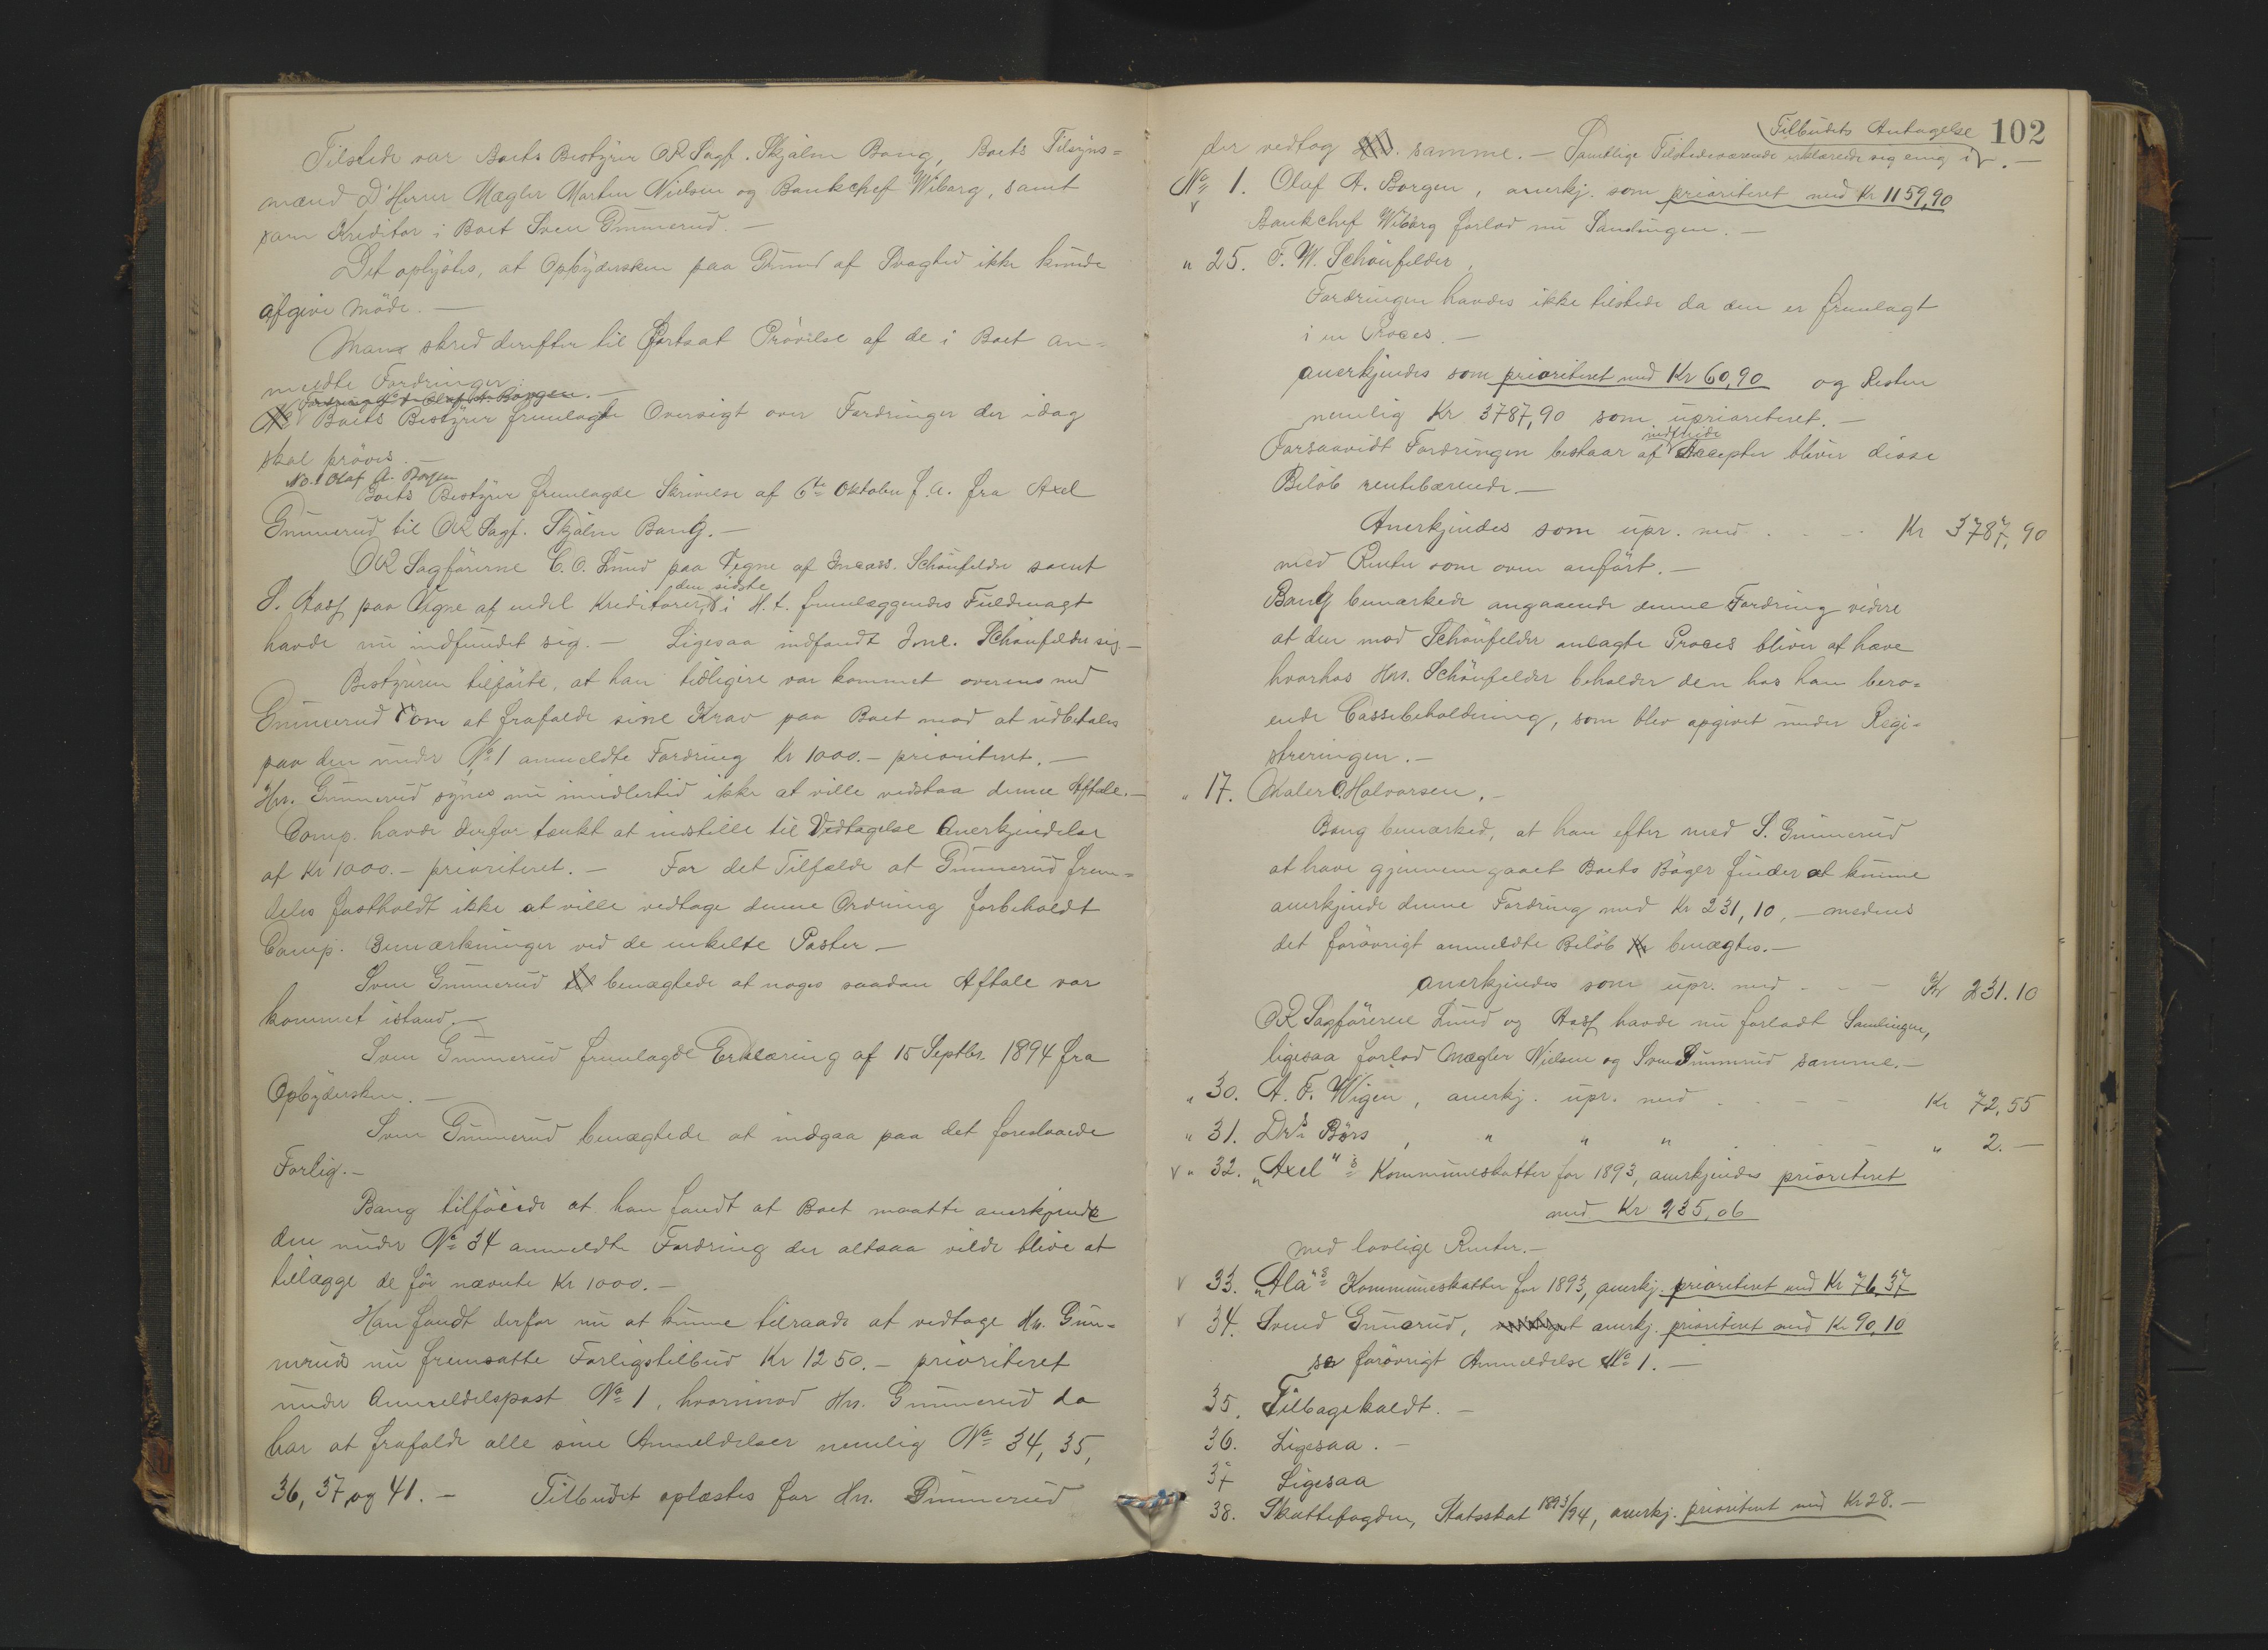 Tilstede var Boets Bestyrer OR Sagf. Skjalm Bang, Boets Tilsyns=
mænd D'Herrer Mægler Morten Nielsen og Bankchef Wiborg, samt
som Kreditor i Boet Sven Gunnerud. —
Det oplystes, at Opbydersken paa Grund af Svaghed ikke kunde
afgive Møde. —
Man skred derefter til fortsat Prøvelse af de i Boet an=
meldte Fordringer.
Fordring No 1 Olaf A. Borgen. —
Boets Bestyrer fremlagde Oversigt over Fordringer der idag
skal prøves. —
No. 1 Olaf A. Borgen
Boets Bestyrer fremlagde Skrivelse af 6te Oktober f.A. fra Axel
Gunnerud til OR Sagf. Skjalm Bang. —
OR Sagførerne C. O. Lund paa Vegne af Incass. Schønfelder samt
S. Aas paa Vegne af endel Kreditorer, den sidste i H. t. fremlæggendes Fuldmagt
havde nu indfundet sig. — Ligesaa indfandt Inc. Schønfelder sig —
Bestyreren tilførte, at han tidligere var kommet overens med
Gunnerud om at frafalde sine Krav paa Boet mod at udbetales
paa den under No 1 anmeldte Fordring Kr 1000. — prioriteret. —
Hr. Gunnerud synes nu imidlertid ikke at ville vedstaa denne Aftale. —
Comp. havde derfor tænkt at indstille til Vedtagelse Anerkjendelse
af Kr 1000. — prioriteret. — For det Tilfælde at Gunnerud frem=
deles fastholdt ikke at ville vedtage denne Ordning forbeholdt
Comp. Bemærkninger ved de enkelte Poster —
Sven Gunnerud benægtede at noget saadan Aftale var
kommet istand. —
Sven Gunnerud fremlagde Erklæring af 15 Septbr. 1894 fra
Opbydersken. —
Sven Gunnerud benægtede at indgaa paa det foreslaaede
Forlig. —
Bang tilføiede at han fandt at Boet maatte anerkjende
den under No 34 anmeldte Fordring der altsaa vilde blive at
tillægge de før nævnte Kr 1000. —
Han fandt derfor nu at kunne tilraade at vedtage Hr. Gun=
neruds nu fremsatte Forligstilbud Kr 1250. — prioriteret
under Anmeldelspost No 1, hvorimod Hr. Gunnerud da
har at frafalde alle sine Anmeldelser nemlig No 34, 35,
36, 37 og 41. — Tilbudet oplæstes for Hr. Gunnerud
102
Tilbudets Antagelse
der vedtog samme. — Samtlige Tilstedeværende erklærede sig enig i . —
No 1. Olaf A. Borgen, anerkj. som prioriteret med Kr 1159,90
Bankchef Wiborg forlod nu Samlingen. —
" 25. F. W. Schønfelder,
Fordringen havdes ikke tilstede da den er fremlagt
i en Proces. —
anerkjendes som prioriteret med Kr 60,90 og Resten
nemlig Kr 3787,90 som uprioriteret. —
Forsaavidt Fordringen bestaar af Accepter bliver disse
Beløb rentebærende. —
Anerkjendes som upr. med . - - Kr 3787,90
med Renter som oven anført. —
Bang bemærkede angaaende denne Fordring videre
at den mod Schønfelder anlagte Proces bliver at hæve
hvorhos Hr. Schønfelder beholder den hos ham bero=
ende Cassebeholdning, som blev opgivet under Regi=
streringen. —
" 17. Maler O. Halvorsen. —
Bang bemærked, at han efter med S. Gunnerud
at have gjennemgaaet Boets Bøger finder at kunne
anerkjende denne Fordring med Kr 231,10, — medens
det forøvrigt anmeldte Beløb benægtes. —
anerkjendes som upr. med - - — Kr 231.10
OR Sagførerne Lund og Aas havde nu forladt Samlingen,
ligesaa forlod Mægler Nielsen og Sven Gunnerud samme. —
" 30. A. F. Wigen, anerkj. upr. med . - - — Kr 72,55
" 31. Dr's Børs , " " " . - - — " 2. —
v " 32. "Axel"s Kommuneskatter for 1893, anerkjendes prioriteret
med Kr 235,06
med lovlige Renter. —
v 33. "Ala"s Kommuneskatter for 1893, anerkj. prioriteret med Kr 76,37
v 34. Svend Gunnerud, anerkj. prioriteret med Kr 90,10
se forøvrigt Anmeldelse No 1. —
35. Tilbagekaldt. —
36. Ligesaa. —
37 Ligesaa
38. Skattefogden, Statsskat 1893/94, anerkj. prioriteret med Kr 28. —